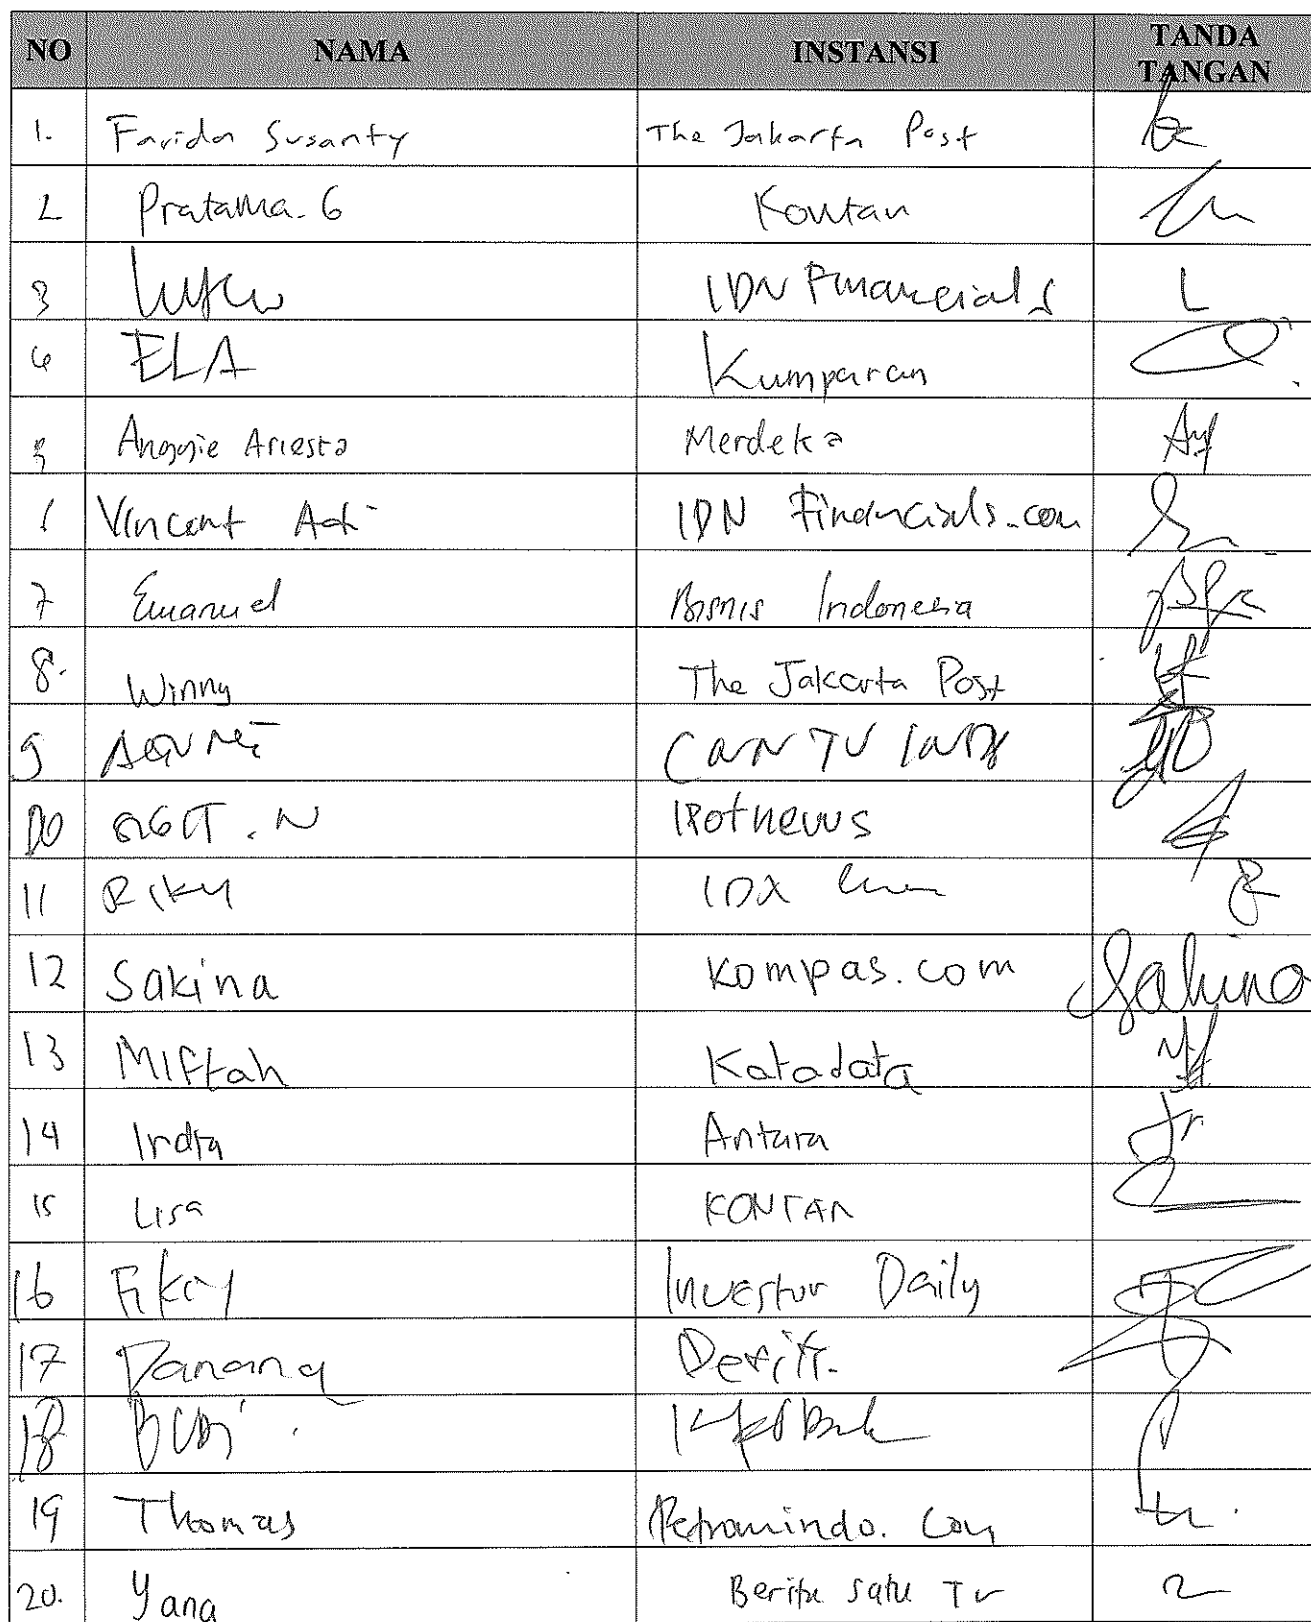 NO NAMA INSTANSI TANDA TANGAN
1. Farida Susanty The Jakarta Post
2 Pratama. G Kontan
3 IDN Financials L
4 ELA Kumparan
5 Anggie Ariesta Merdeka
6 Vincent IDN Financials.com
7 Emanuel Bisnis Indonesia
8. Winny The Jakarta Post
9 CNN TV
10 SIGIT . N IPotnews
11 Riky IDX
12 Sakina Kompas.com Sakina
13 Miftah Katadata
14 Indra Antara
15 Lisa KONTAN
16 Fikry Investor Daily
17 Danang Detik
18 Budi
19 Thomas Petromindo.com
20. Yana Berita Satu TV